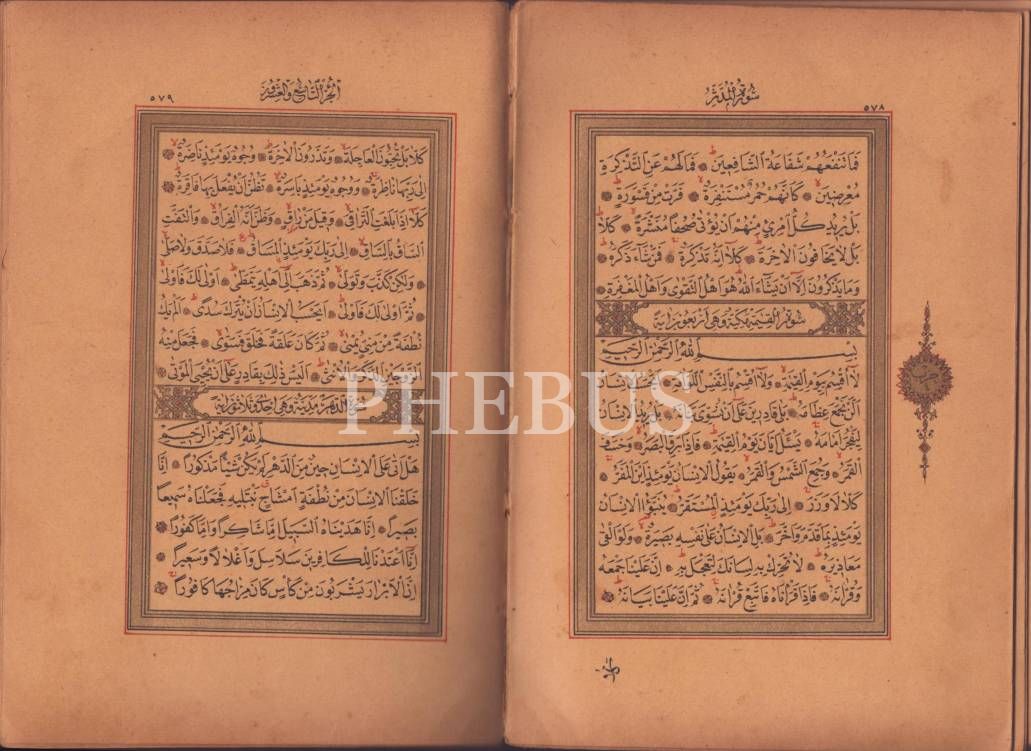 سورة المدثر
٥٧٨
فما تنفعهم شفاعة الشافعين فما لهم عن التذكرة
معرضين كانهم حمر مستنفرة فرت من قسورة
بل يريد كل امرئ منهم ان يؤتى صحفا منشرة كلا
بل لا يخافون الاخرة كلا انه تذكرة فمن شاء ذكره
وما يذكرون الا ان يشاء الله هو اهل التقوى واهل المغفرة
سورة القيمة مكية وهي اربعون اية
بسم الله الرحمن الرحيم
لا اقسم بيوم القيمة ولا اقسم بالنفس اللوامة ايحسب الانسان
الن نجمع عظامه بلى قادرين على ان نسوي بنانه بل يريد الانسان
ليفجر امامه يسئل ايان يوم القيمة فاذا برق البصر وخسف
القمر وجمع الشمس والقمر يقول الانسان يومئذ اين المفر
كلا لا وزر الى ربك يومئذ المستقر ينبؤا الانسان
يومئذ بما قدم واخر بل الانسان على نفسه بصيرة ولو القى
معاذيره لا تحرك به لسانك لتعجل به ان علينا جمعه
وقرانه فاذا قراناه فاتبع قرانه ثم ان علينا بيانه
الجزء التاسع والعشرون
٥٧٩
كلا بل تحبون العاجلة وتذرون الاخرة وجوه يومئذ ناضرة
الى ربها ناظرة ووجوه يومئذ باسرة تظن ان يفعل بها فاقرة
كلا اذا بلغت التراقي وقيل من راق وظن انه الفراق والتفت
الساق بالساق الى ربك يومئذ المساق فلا صدق ولا صلى
ولكن كذب وتولى ثم ذهب الى اهله يتمطى اولى لك فاولى
ثم اولى لك فاولى ايحسب الانسان ان يترك سدى الم يك
نطفة من مني يمنى ثم كان علقة فخلق فسوى فجعل منه
الزوجين الذكر والانثى اليس ذلك بقادر على ان يحيي الموتى
سورة الدهر مدنية وهي احدى وثلاثون اية
بسم الله الرحمن الرحيم
هل اتى على الانسان حين من الدهر لم يكن شيئا مذكورا انا
خلقنا الانسان من نطفة امشاج نبتليه فجعلناه سميعا
بصيرا انا هديناه السبيل اما شاكرا واما كفورا
انا اعتدنا للكافرين سلاسل واغلالا وسعيرا
ان الابرار يشربون من كأس كان مزاجها كافورا
PHEBUS